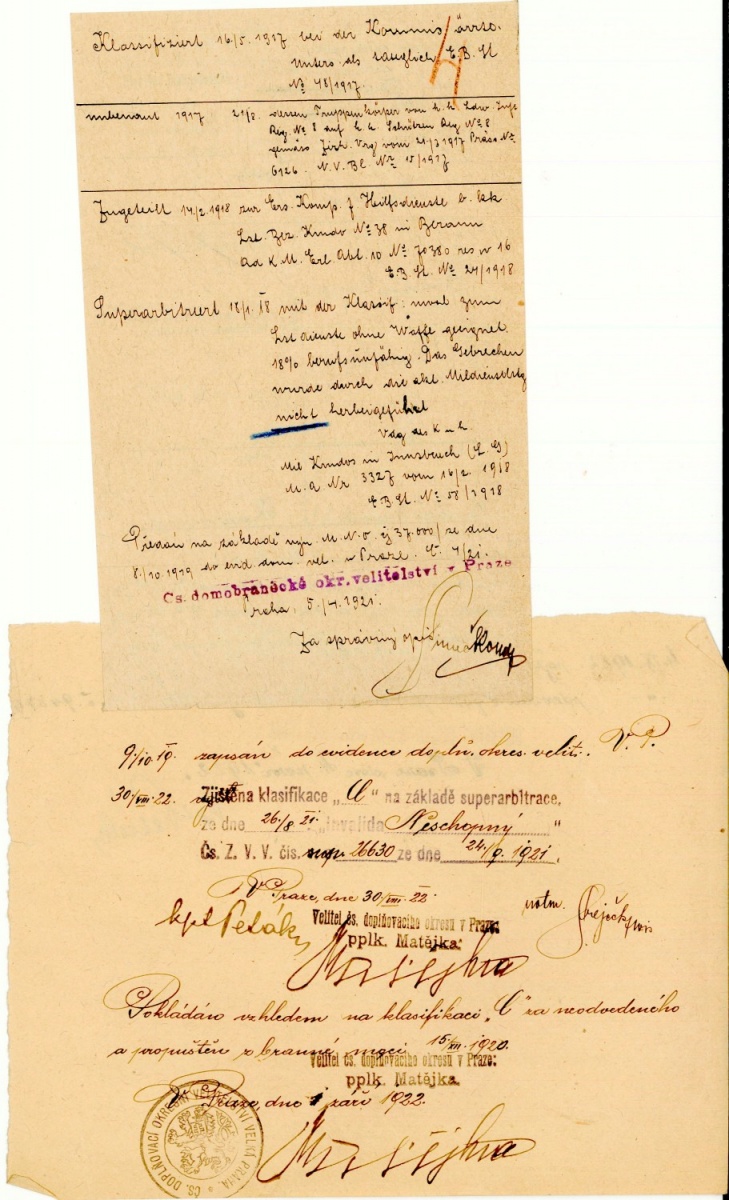 Klassifiziert 16/5. 1917 bei der Kommis ärztl.
Unters. als tauglich E. B. Sl
№ 48/1917.
umbenannt 1917 21/8. dessen Truppenkörper von k. k. Ldw. Infr
Reg. № 8 auf k. k. Schützen Reg № 8
gemäss Zirk. Vdg vom 21/3 1917 Präs №
6126. N. V. Bl № 15/1917
Zugeteilt 14/2. 1918 zur Ers. Komp. f Hilfsdienste b. kk
Lst. Bez. Kmdo № 38 in Beraun
ad K. M. Erl. Abt. 10 № 70380 res v 16
E. B. Sl. № 24/1918
Superarbitriert 18/1. 18 mit der Klassif: inval zum
Lst dienste ohne Waffe geeignet.
18% berufsunfähig. Das Gebrechen
wurde durch die akt.
nicht herbeigeführt
Vdg des K u k.
Mil Kmdos in Innsbruck (L. G)
M. A Nr 3327 vom 16/2. 1918
E. B. Sl. № 58/1918
Předán na základě výn. M. N. O. čj 37.000/ ze dne
8./10. 1919 do evid. dom. vel. v Praze. Č. 4/21.
Čs. domobranecké okr. velitelství v Praze
Praha, 5./4. 1921.
Za správný opis
9./10. 19. zapsán do evidence doplň. okres. velit. V. P.
30/VIII. 22. Zjištěna klasifikace „C" na základě superarbitrace,
ze dne 26./8 21. „invalida Neschopný"
Čs. Z. V. V. čís. sup. 26630 ze dne 24./9. 1921.
V Praze, dne 30/VIII. 22.
kpt Peták
Velitel čs. doplňovacího okresu v Praze:
pplk. Matějka.
rotm.
Matějka
Pokládán vzhledem na klasifikaci „C" za neodvedeného
a propuštěn z branné moci 15/XII. 1920.
Velitel čs. doplňovacího okresu v Praze:
pplk. Matějka.
V Praze, dne 1 září 1922.
Matějka
ČS. DOPLŇOVACÍ OKRESNÍ VELITELSTVÍ VELKÁ PRAHA